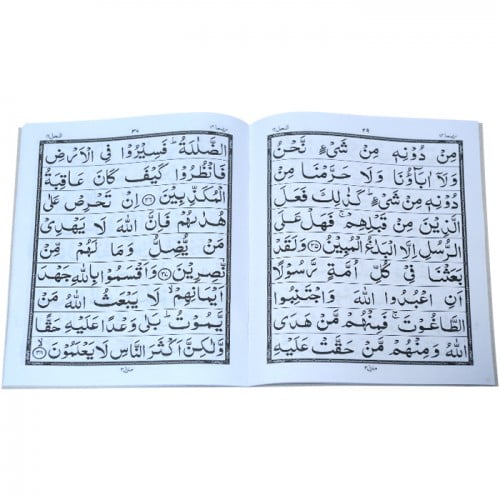 النحل ١٦
٢٩
ربما ١٤
مِنْ دُوْنِهٖ مِنْ شَىْءٍ نَّحْنُ
وَلَاۤ اٰبَآؤُنَا وَلَا حَرَّمْنَا مِنْ
دُوْنِهٖ مِنْ شَىْءٍ ؕ كَذٰلِكَ فَعَلَ
الَّذِيْنَ مِنْ قَبْلِهِمْ ۚ فَهَلْ عَلَى
الرُّسُلِ اِلَّا الْبَلٰغُ الْمُبِيْنُ ﴿٣٥﴾ وَلَقَدْ
بَعَثْنَا فِىْ كُلِّ اُمَّةٍ رَّسُوْلًا
اَنِ اعْبُدُوا اللّٰهَ وَاجْتَنِبُوا
الطَّاغُوْتَ ۚ فَمِنْهُمْ مَّنْ هَدَى
اللّٰهُ وَمِنْهُمْ مَّنْ حَقَّتْ عَلَيْهِ
منزل ٣
النحل ١٦
٣٠
ربما ١٤
الضَّلٰلَةُ ؕ فَسِيْرُوْا فِى الْاَرْضِ
فَانْظُرُوْا كَيْفَ كَانَ عَاقِبَةُ
الْمُكَذِّبِيْنَ ﴿٣٦﴾ اِنْ تَحْرِصْ عَلٰى
هُدٰىهُمْ فَاِنَّ اللّٰهَ لَا يَهْدِىْ
مَنْ يُّضِلُّ وَمَا لَهُمْ مِّنْ
نّٰصِرِيْنَ ﴿٣٧﴾ وَاَقْسَمُوْا بِاللّٰهِ جَهْدَ
اَيْمَانِهِمْ ۙ لَا يَبْعَثُ اللّٰهُ مَنْ
يَّمُوْتُ ؕ بَلٰى وَعْدًا عَلَيْهِ حَقًّا
وَّلٰكِنَّ اَكْثَرَ النَّاسِ لَا يَعْلَمُوْنَ ﴿٣٨﴾
منزل ٣